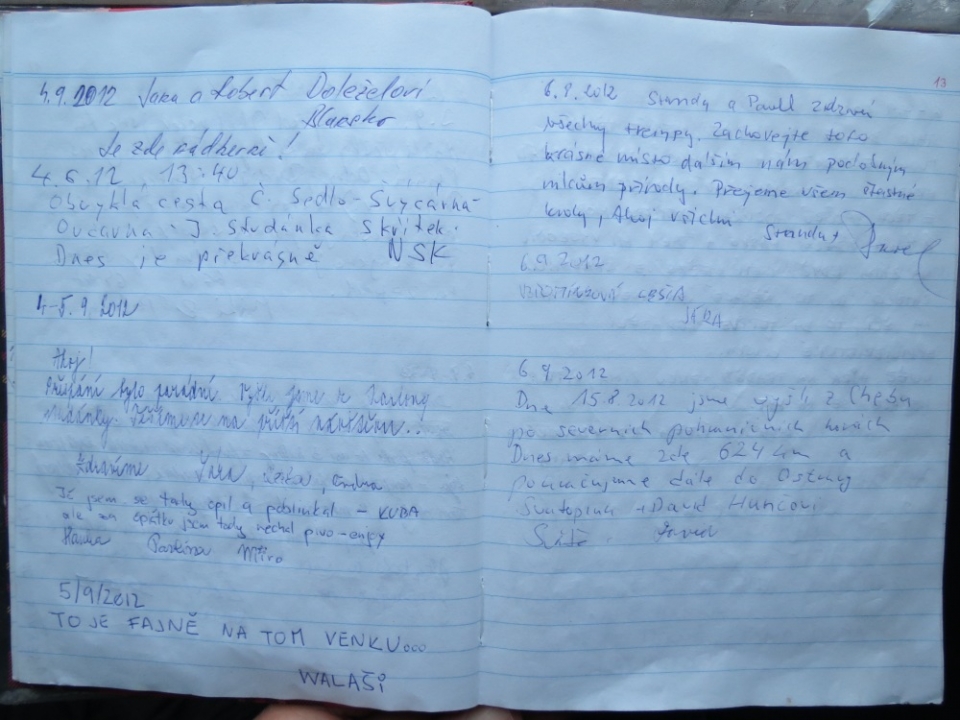 4.9.2012 Jana a Robert Doleželovi
Blansko
Je zde nádherně!
4.6.12 13:40
Obvyklá cesta Č. Sedlo-Švýcárna-
Ovčárna- J. Studánka Skřítek.
Dnes je překrásně NSK
4-5.9.2012
Ahoj!
bylo parádní. jsme
Těšíme se na příští návštěvu..
Zdravíme Jana,
Já jsem se tady opil a poblinkal - KUBA
ale na oplátku jsem tady nechal pivo-enjoy
Hanka Pavlína Míra
5/9/2012
TO JE FAJNĚ NA TOM VENKU...
WALAŠI
13
6.9.2012 Standa a Pavel zdraví
všechny trempy. Zachovejte toto
krásné místo dalším nám podobným
milcům přírody. Přejeme všem šťastné
kroky, Ahoj všichni
Standa + Pavel
6.9.2012
CESTA
JÍRA
6.9.2012
Dne 15.8.2012 jsme vyšli z Chebu
po severních pohraničních horách
Dnes máme zde 624 km a
pokračujeme dále do Ostravy
Svatopluk a David Hunčovi
David